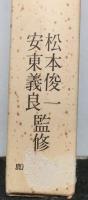 松本俊一
安東義良
監修